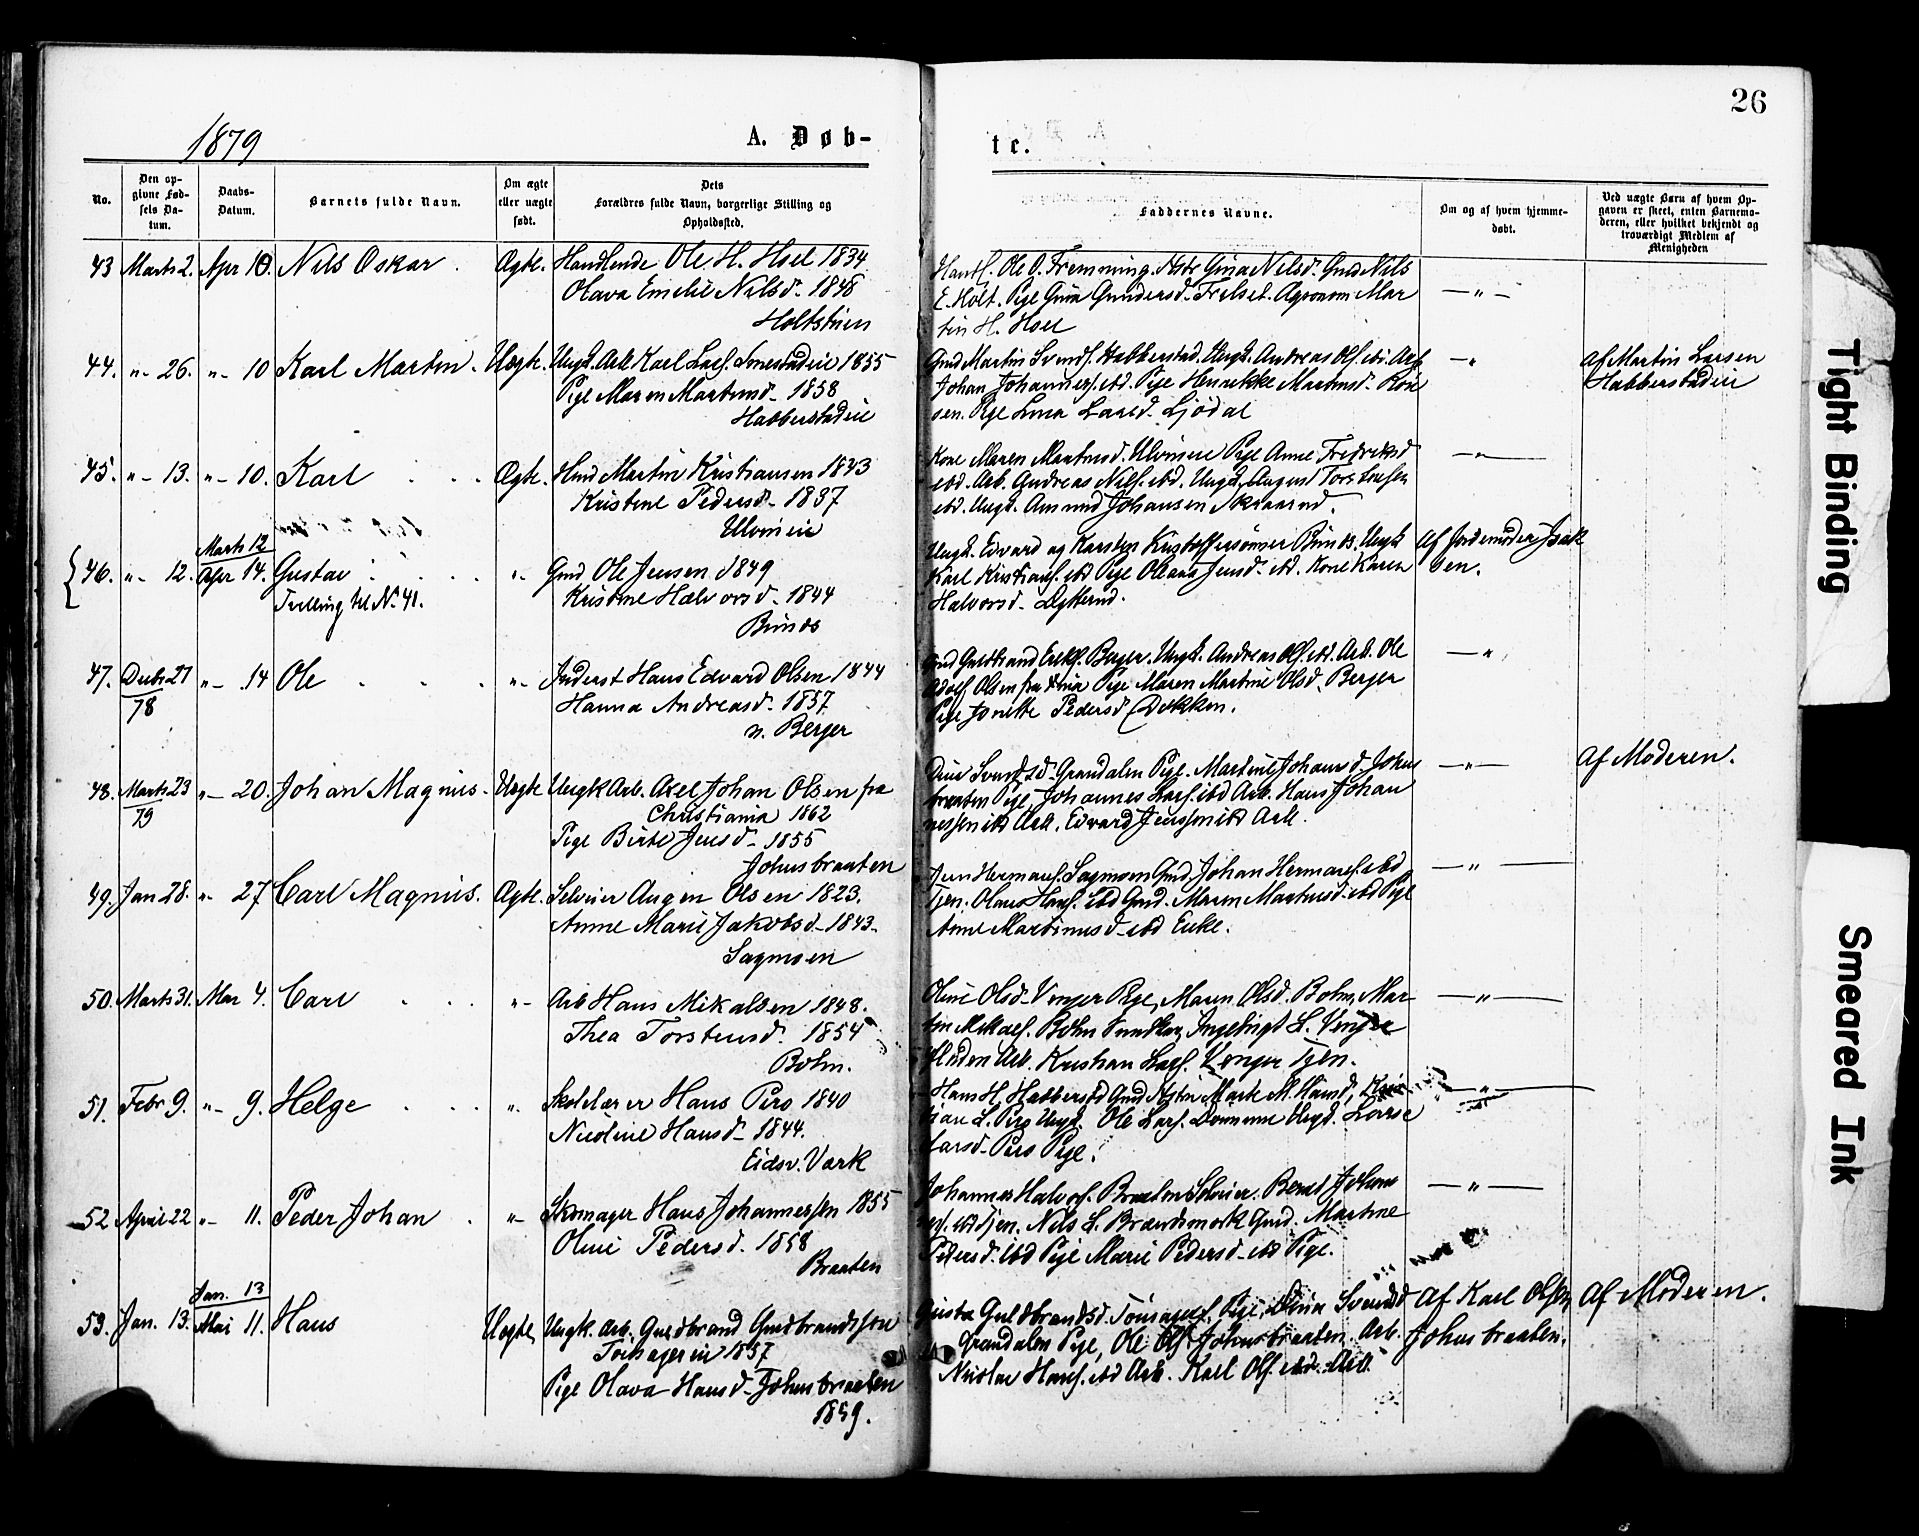 26
1879
A. Døb-
te.
No.
Den op-
givne Fød-
sels Da-
tum.
Daabs-
Datum.
Barnets fulde Navn.
Om ægte
eller uægte
født.
Dets
Forældres fulde Navn, borgerlige Stilling og
Opholdssted.
Faddernes Navne.
Om og af hvem hjemme-
døbt.
Ved uægte Børn af hvem Op-
gaven er skeet, enten Barnemo-
deren, eller hvilket bekjendt og
troværdigt Medlem af
Menigheden
43 Marts 2. Apr 10. Nils Oskar. Ægte. Handlende Ole H. Hoel 1834
Olava Emelie Nilsd. 1848
Holtstuen
Ole O. Fremming. Gina Nilsd. Gmd Nils
E. Holt. Pige Gina Gundersd. Agronom Mar
tin H. Hoel
— " —
44. "- 26. "- 10 Karl Martin. Uægte. Ungk. Arb. Karl Lars. 1855
Pige Maren Martinsd. 1858
Habberstadeie
Gmd Martin Svends. Habberstad. Ungk. Andreas Ols. ibd.
Johan Johannes. ibd. Pige Henrikke Martinsd.
Pige Lina Larsd. Ljødal
— "
Af Martin Larsen
Habberstadeie
45. "- 13. "- 10. Karl Ægte. Hmd Martin Kristiansen 1833
Kristine Pedersd. 1837
Ulvineie
Kone Maren Martinsd. Ulvineie Pige Anne Fredriksd
ibd. Arb. Andreas Nils. ibd. Ungk. August Torstensen
ibd. Ungk. Amund Johansen
— " —
46. "- 12. Marts 12
Apr 14. Gustav "- Gmd Ole Jensen 1849
Tvilling til No 41.
Kristine Halvorsd. 1844
Bunes
Ungk. Edvard og Karsten Kristoffersønner Ungk
Karl Kristians. ibd Pige Oleana Jensd. ibd. Kone Karen
Halvorsd.
Af Jordemoder Isak
sen.
47. Decbr 27
78 "- 14 Ole "- Inderst Hans Edvard Olsen 1844
Hanna Andreasd. 1857
n. Berger
Gmd Guldbrand Eriks. Berger. Ungk. Andreas Ols. ibd. Arb. Ole
Adolf Olsen fra Pige Maren Martine Olsd. Berger
Pige Jonette Pedersd Dokken.
— "
48. Marts 23
79 "- 20. Johan Magnus. Uægte Ungk Arb. Axel Johan Olsen fra
Christiania 1862
Pige Birte Jensd. 1855
Johnsbraaten
Svendsd. Grandalen Pige. Martine Johansd. Johns
braaten Pige, Johannes Lars. ibd Arb. Hans Johan
nessen ibd Arb. Edvard Jenssen ibd Arb.
— " —
Af Moderen.
49. Jan 28. "- 27 Carl Magnus. Ægte. Selveier Augen Olsen 1823.
Anne Marie Jakobsd. 1843.
Sagmoen
Hermans. Sagmoen Gmd. Johan Hermans. ibd
Tjen. Olaus Hans. ibd Gmd. Maren Martinsd. ibd Pige
Anne Martinusd. ibd Enke.
— " —
50. Marts 31. Mai 4. Carl "- Arb Hans Mikalsen 1848.
Thea Torstensd. 1854
Bohn.
Oline Olsd. Venger Pige, Maren Olsd. Bohn, Mar-
tin Mikaels. Bohn Ingebrigt L. Venger
Arb. Kristian Lars. Venger Tjen.
— " —
51. Febr 9. "- 9. Helge ". Skolelærer Hans Piro 1840
Nicoline Hansd. 1844.
Eidsv. Værk
Hans H. Habberstad Gmd Marte M. Hansd,
L. Piro Ungk. Ole Lars. Ungk. Lovise
Larsd. Piro Pige.
— " —
52 April 22 "- 11. Peder Johan "- Skomager Hans Johannessen 1855
Oline Pedersd. 1858
Braaten
Johannes Halvors. Braaten Selveier. Bernt Johan
nes. ibd Tjen. Nils L. Brændsmork Gmd. Martine
Pedersd. ibd Pige Marie Pedersd. ibd Pige.
— " —
53. Jan. 13. Jan. 13
Mai 11. Hans Uægte. Ungk. Arb. Guldbrand Guldbrandssen
1857
Pige Olava Hansd. Johnsbraaten
1859.
Guldbrandsd. Pige, Svendsd
Grandalen Pige, Ole Ols. Johnsbraaten. Arb.
Nicolai Hans. ibd Arb. Karl Ols. ibd. Arb.
Af Karl Olsen
Johnsbraaten.
Af Moderen.
Tight Binding
Smeared Ink